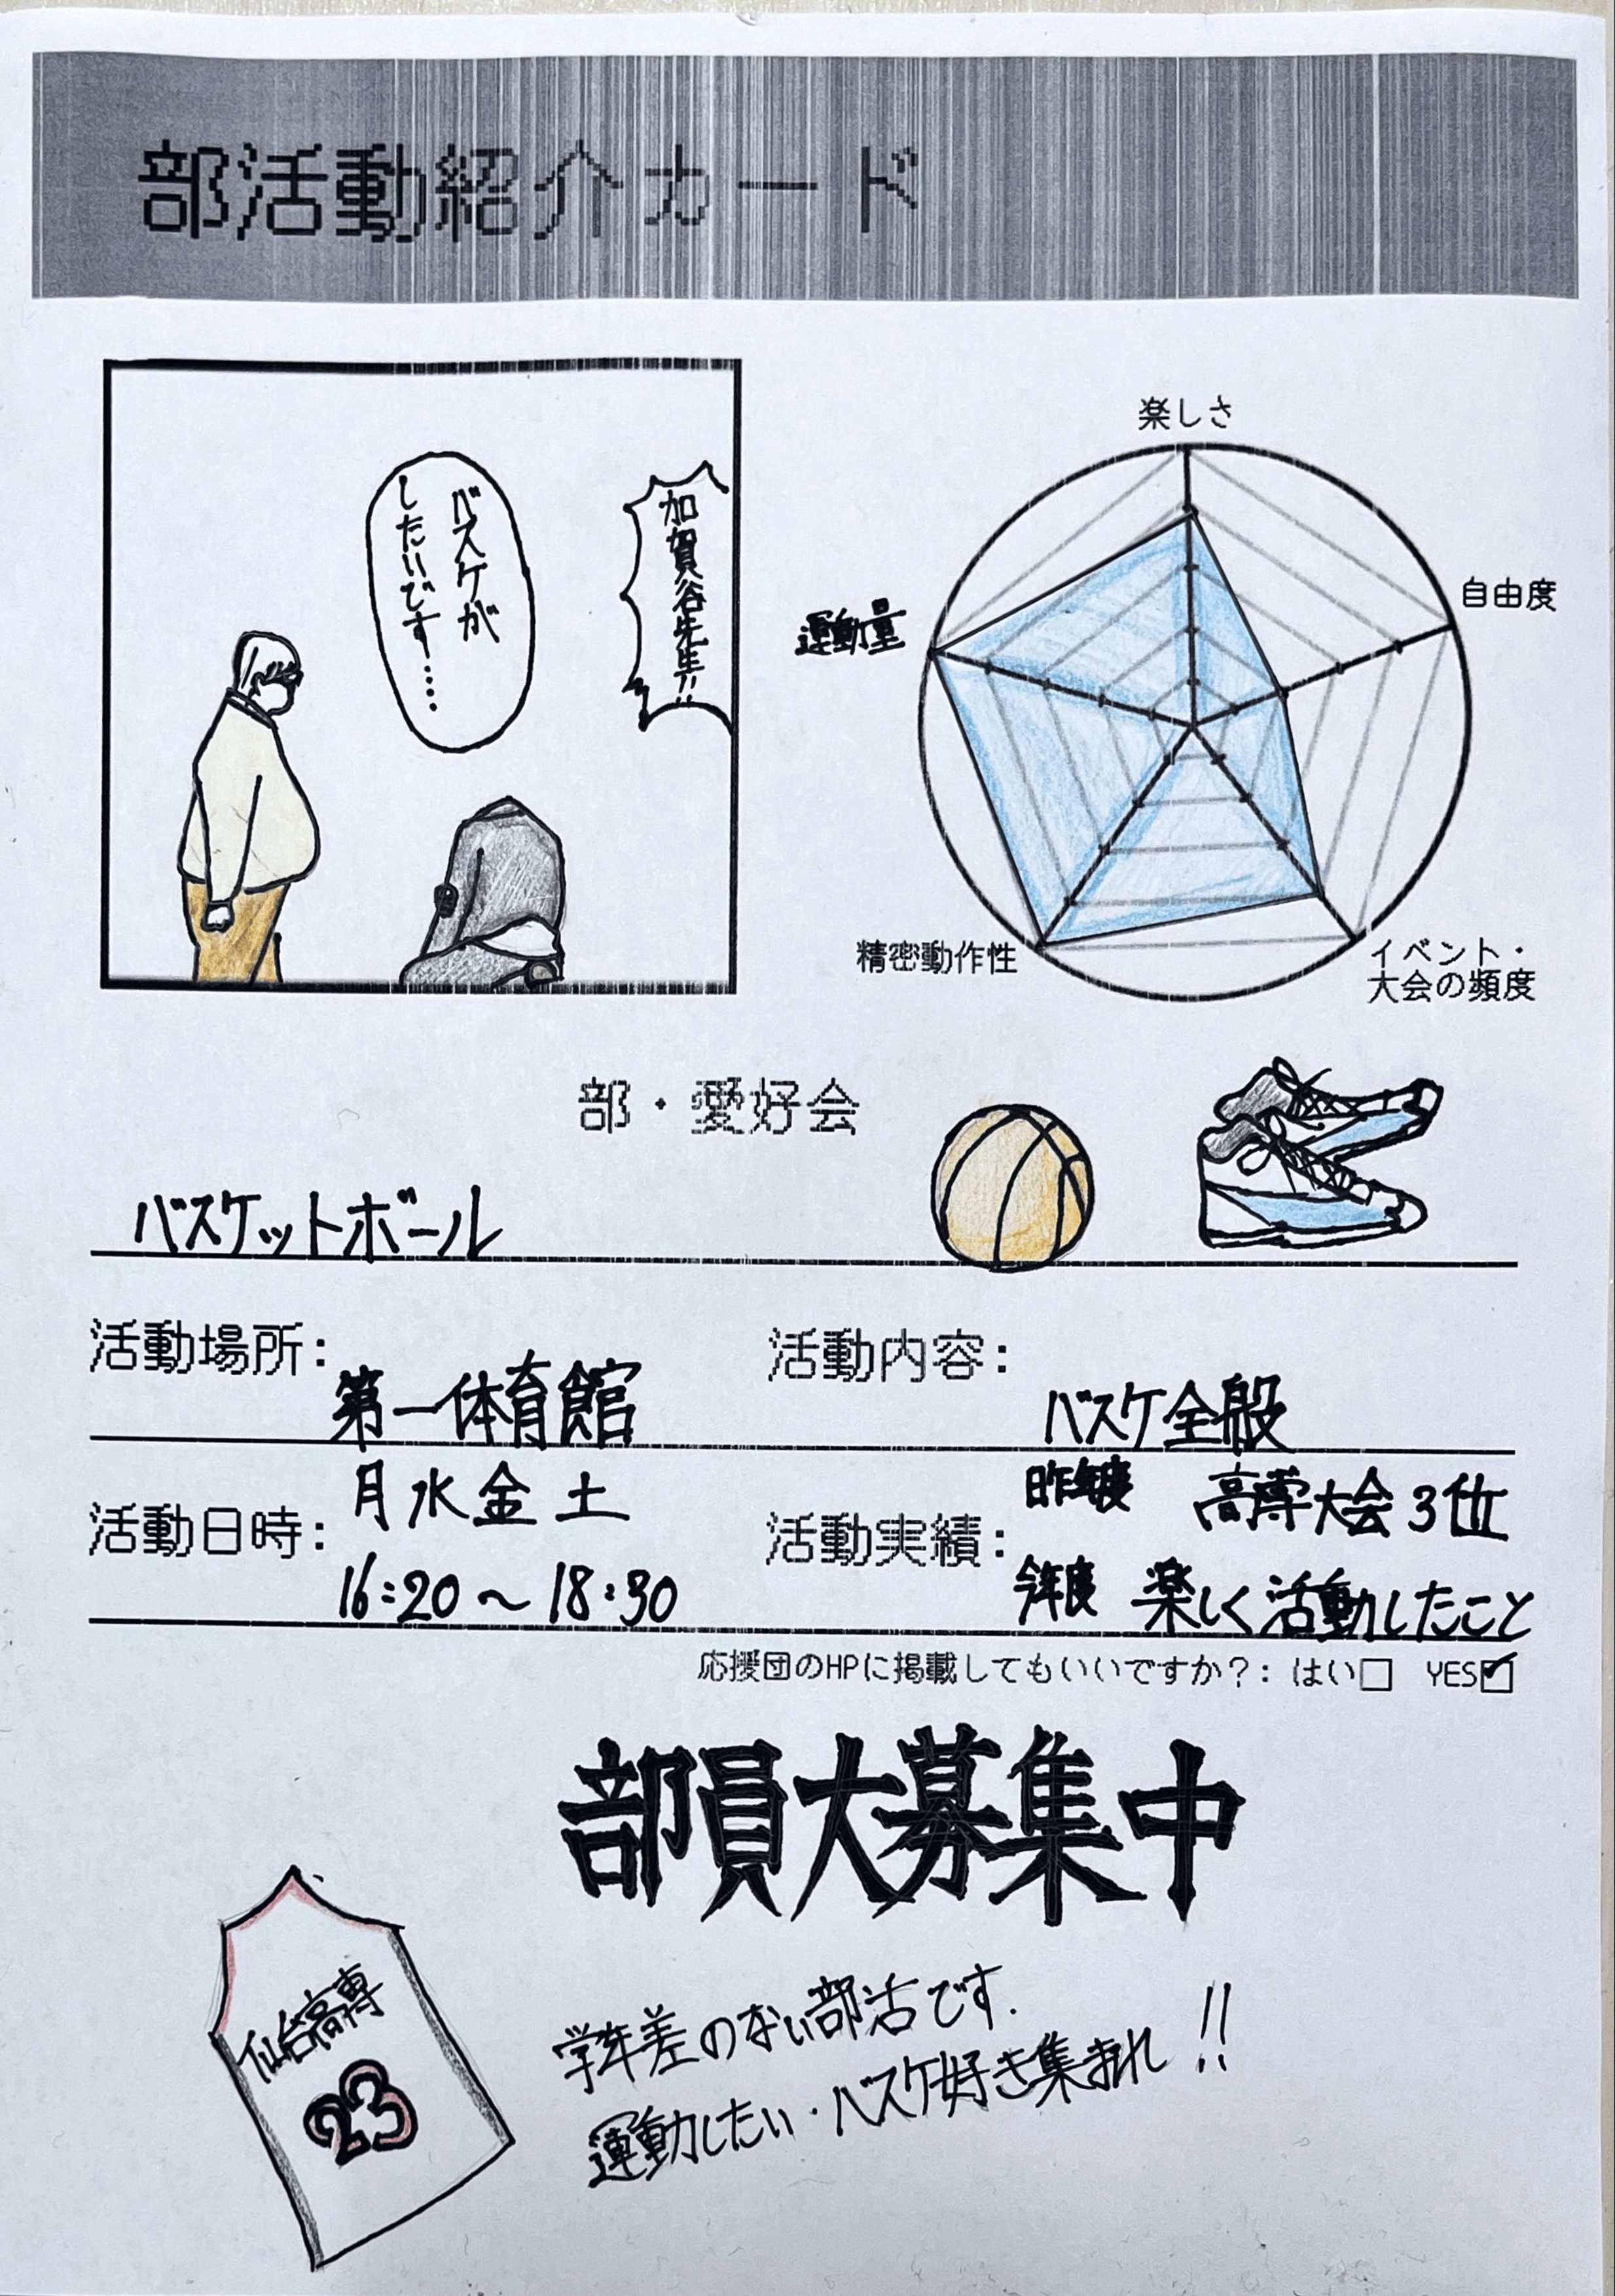 部活動紹介カード
加賀谷先生!!
バスケが
したいです……
楽しさ
自由度
運動量
精密動作性
イベント・
大会の頻度
部・愛好会
バスケットボール
活動場所: 第一体育館
活動内容: バスケ全般
活動日時: 月水金土
16:20～18:30
活動実績: 昨年度 高専大会3位
今年度 楽しく活動したこと
応援団のHPに掲載してもいいですか?: はい□ YES☑
部員大募集中
仙台高専
23
学年差のない部活です.
運動したい・バスケ好き集まれ!!